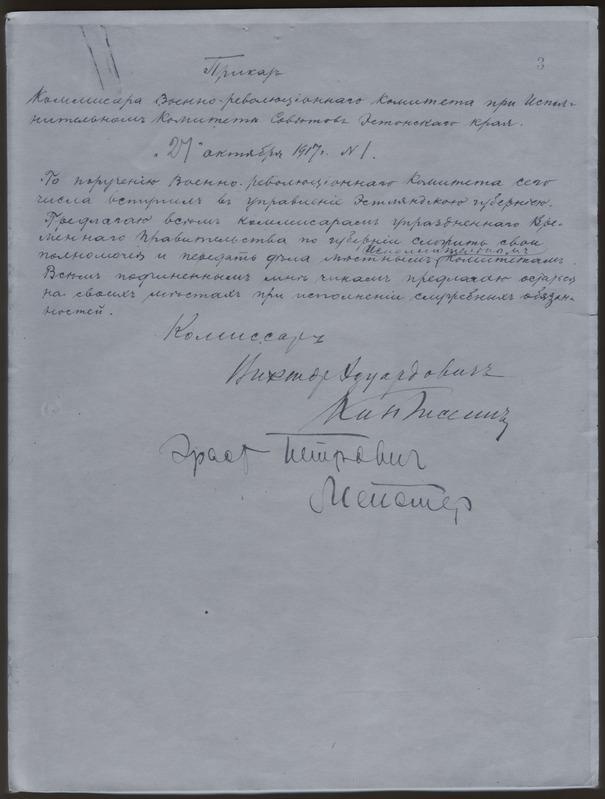 3
Приказъ
Коммисара Военно-революціоннаго Комитета при Испол-
нительномъ Комитетѣ Совѣтовъ Эстонскаго края.
"27" октября 1917 г. №1.
По порученію Военно-революціоннаго Комитета сего
числа вступилъ въ управленіе Эстляндскою губерніею.
Предлагаю всѣмъ коммисарамъ упраздненнаго Вре-
меннаго Правительства по губерніи сложить свои
полномочія и передать дѣла мѣстнымъ Исполнительнымъ Комитетамъ
Всѣмъ подчиненнымъ мнѣ чинамъ предлагаю остаться
на своихъ мѣстахъ при исполненіи служебныхъ обязан-
ностей.
Комиссаръ
Викторъ Эдуардовичъ
Кингисеппъ
Петрович